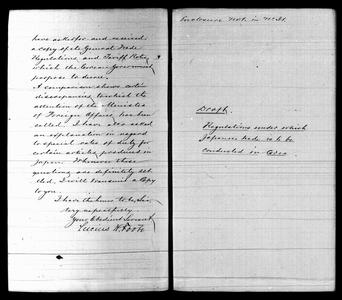 have asked for and received
a copy of the General Trade
Regulations and Tariff Rates
which the Corean Government
propose to decree.
A comparison shows certain
discrepancies to which the
attention of the Minister
of Foreign Affairs has been
called. I have also asked
an explanation in regard
to special rates of duty for
certain articles produced in
Japan. Whenever these
questions are definitely set-
tled, I will transmit a Copy
to you.
I have the honor to be, Sir,
Very respectfully
Your Obedient Servant
Lucius H. Foote
Enclosure No. 1. in No.
Draft.
Regulations under which
Japanese trade is to be
conducted in Corea.